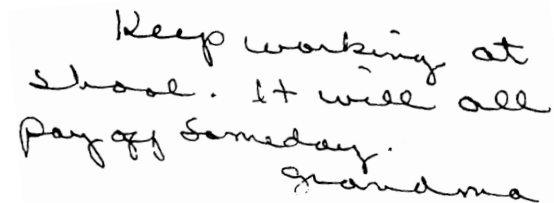 Keep working at
shool. It will all
pay off Someday.
grandma